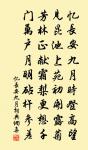 忆长安九月时登高望
见昆池上苑初开露菊
芳林正献霜梨更想千
门万户月明砧杵参差
忆长安九月范灯诗意